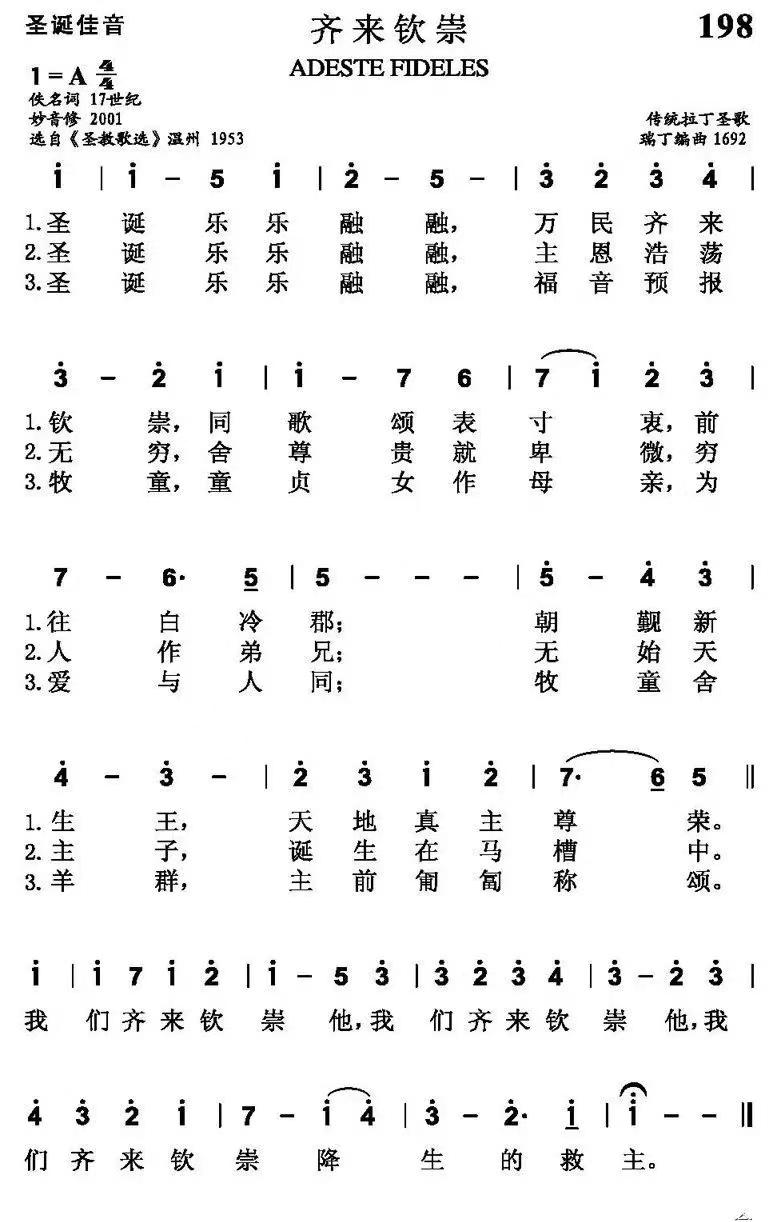 圣诞佳音 齐来钦崇 198
ADESTE FIDELES
1=A 4/4
佚名词 17世纪
妙音修 2001 传统拉丁圣歌
选自《圣教歌选》温州 1953 瑞丁编曲1692
i | i - 5 i | 2̇ - 5 - | 3̇ 2̇ 3̇ 4̇ |
1.圣 诞 乐 乐 融 融, 万 民 齐 来
2.圣 诞 乐 乐 融 融, 主 恩 浩 荡
3.圣 诞 乐 乐 融 融, 福 音 预 报
3̇ - 2̇ i | i - 7 6 | 7 i 2̇ 3̇ |
1.钦 崇, 同 歌 颂 表 寸 衷, 前
2.无 穷, 舍 尊 贵 就 卑 微, 穷
3.牧 童, 童 贞 女 作 母 亲, 为
7 - 6· 5 | 5 - - - | 5̇ - 4̇ 3̇ |
1.往 白 冷 郡; 朝 觐 新
2.人 作 弟 兄; 无 始 天
3.爱 与 人 同; 牧 童 舍
4̇ - 3̇ - | 2̇ 3̇ i 2̇ | 7· 6 5 ‖
1.生 王, 天 地 真 主 尊 荣。
2.主 子, 诞 生 在 马 槽 中。
3.羊 群, 主 前 匍 匐 称 颂。
i | i 7 i 2̇ | i - 5 3̇ | 3̇ 2̇ 3̇ 4̇ | 3̇ - 2̇ 3̇ |
我 们 齐 来 钦 崇 他, 我 们 齐 来 钦 崇 他, 我
4̇ 3̇ 2̇ i | 7 - i 4̇ | 3̇ - 2̇· i | i - - ‖
们 齐 来 钦 崇 降 生 的 救 主。